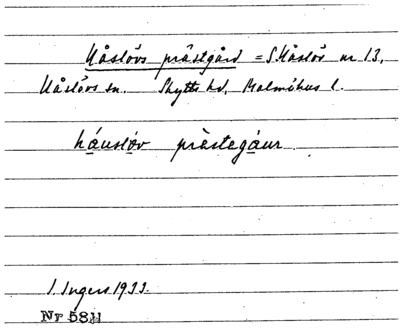 Håslövs prästgård = S. Håslöv nr 13,
Håslövs sn. Skytts hd, Malmöhus l.
háuslǫv prèstegáur
I. Ingers 1933.